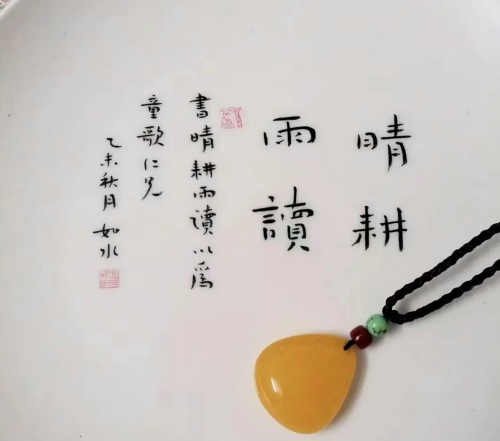 晴耕
雨讀
書晴耕雨讀以爲
童歌仁兄
乙未秋月 如水